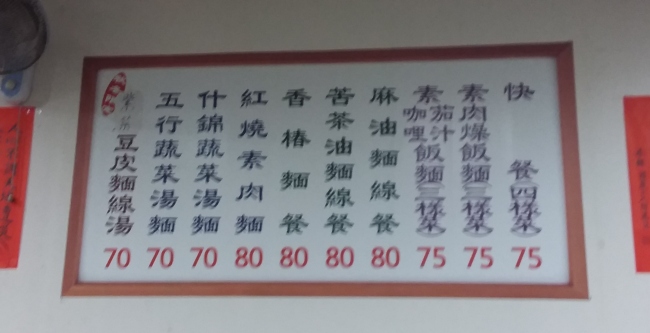 快餐四樣菜 75
素肉燥飯麵三樣菜 75
素咖哩茄汁飯麵三樣菜 75
麻油麵線餐 80
苦茶油麵線餐 80
香椿麵餐 80
紅燒素肉麵 80
什錦蔬菜湯麵 70
五行蔬菜湯麵 70
豆皮麵線湯 70